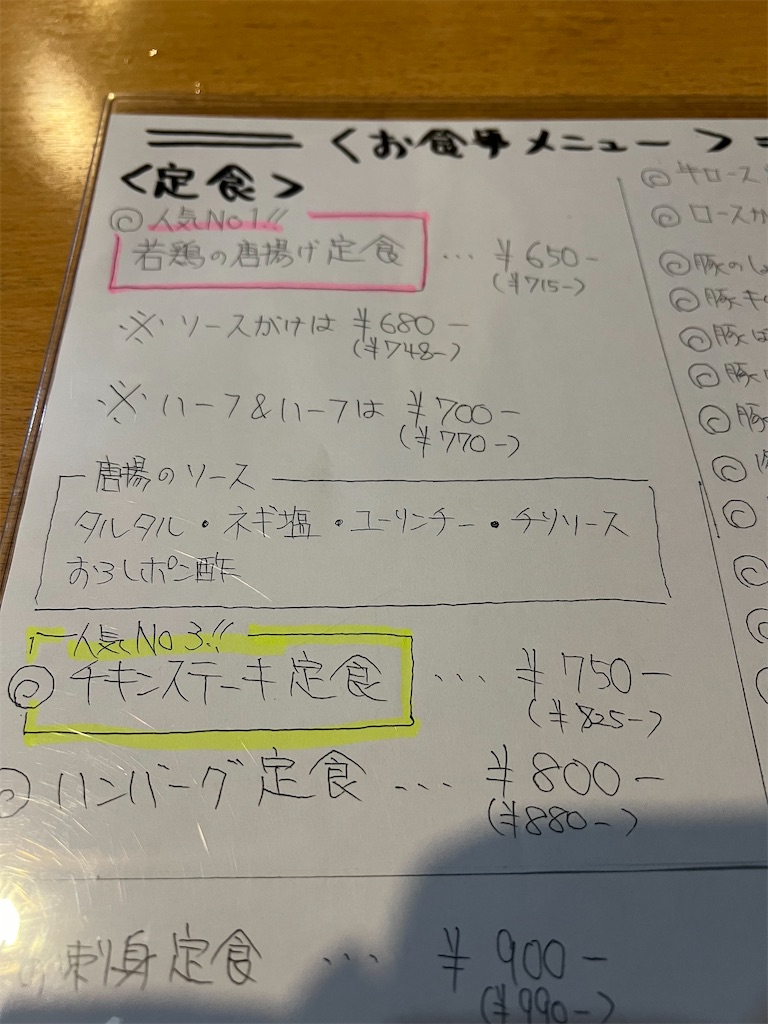 <お食事メニュー>
<定食>
◎人気No1!!
若鶏の唐揚げ定食 … ¥650-
(¥715-)
※ソースがけは ¥680-
(¥748-)
※ハーフ&ハーフは ¥700-
(¥770-)
唐揚のソース
タルタル・ネギ塩・ユーリンチー・チリソース
おろしポン酢
人気No3!!
◎チキンステーキ定食 … ¥750-
(¥825-)
◎ハンバーグ定食 … ¥800-
(¥880-)
刺身定食 … ¥900-
(¥990-)
◎牛ロース
◎ロースか
◎豚のし
◎豚キ
◎豚
◎豚
◎豚